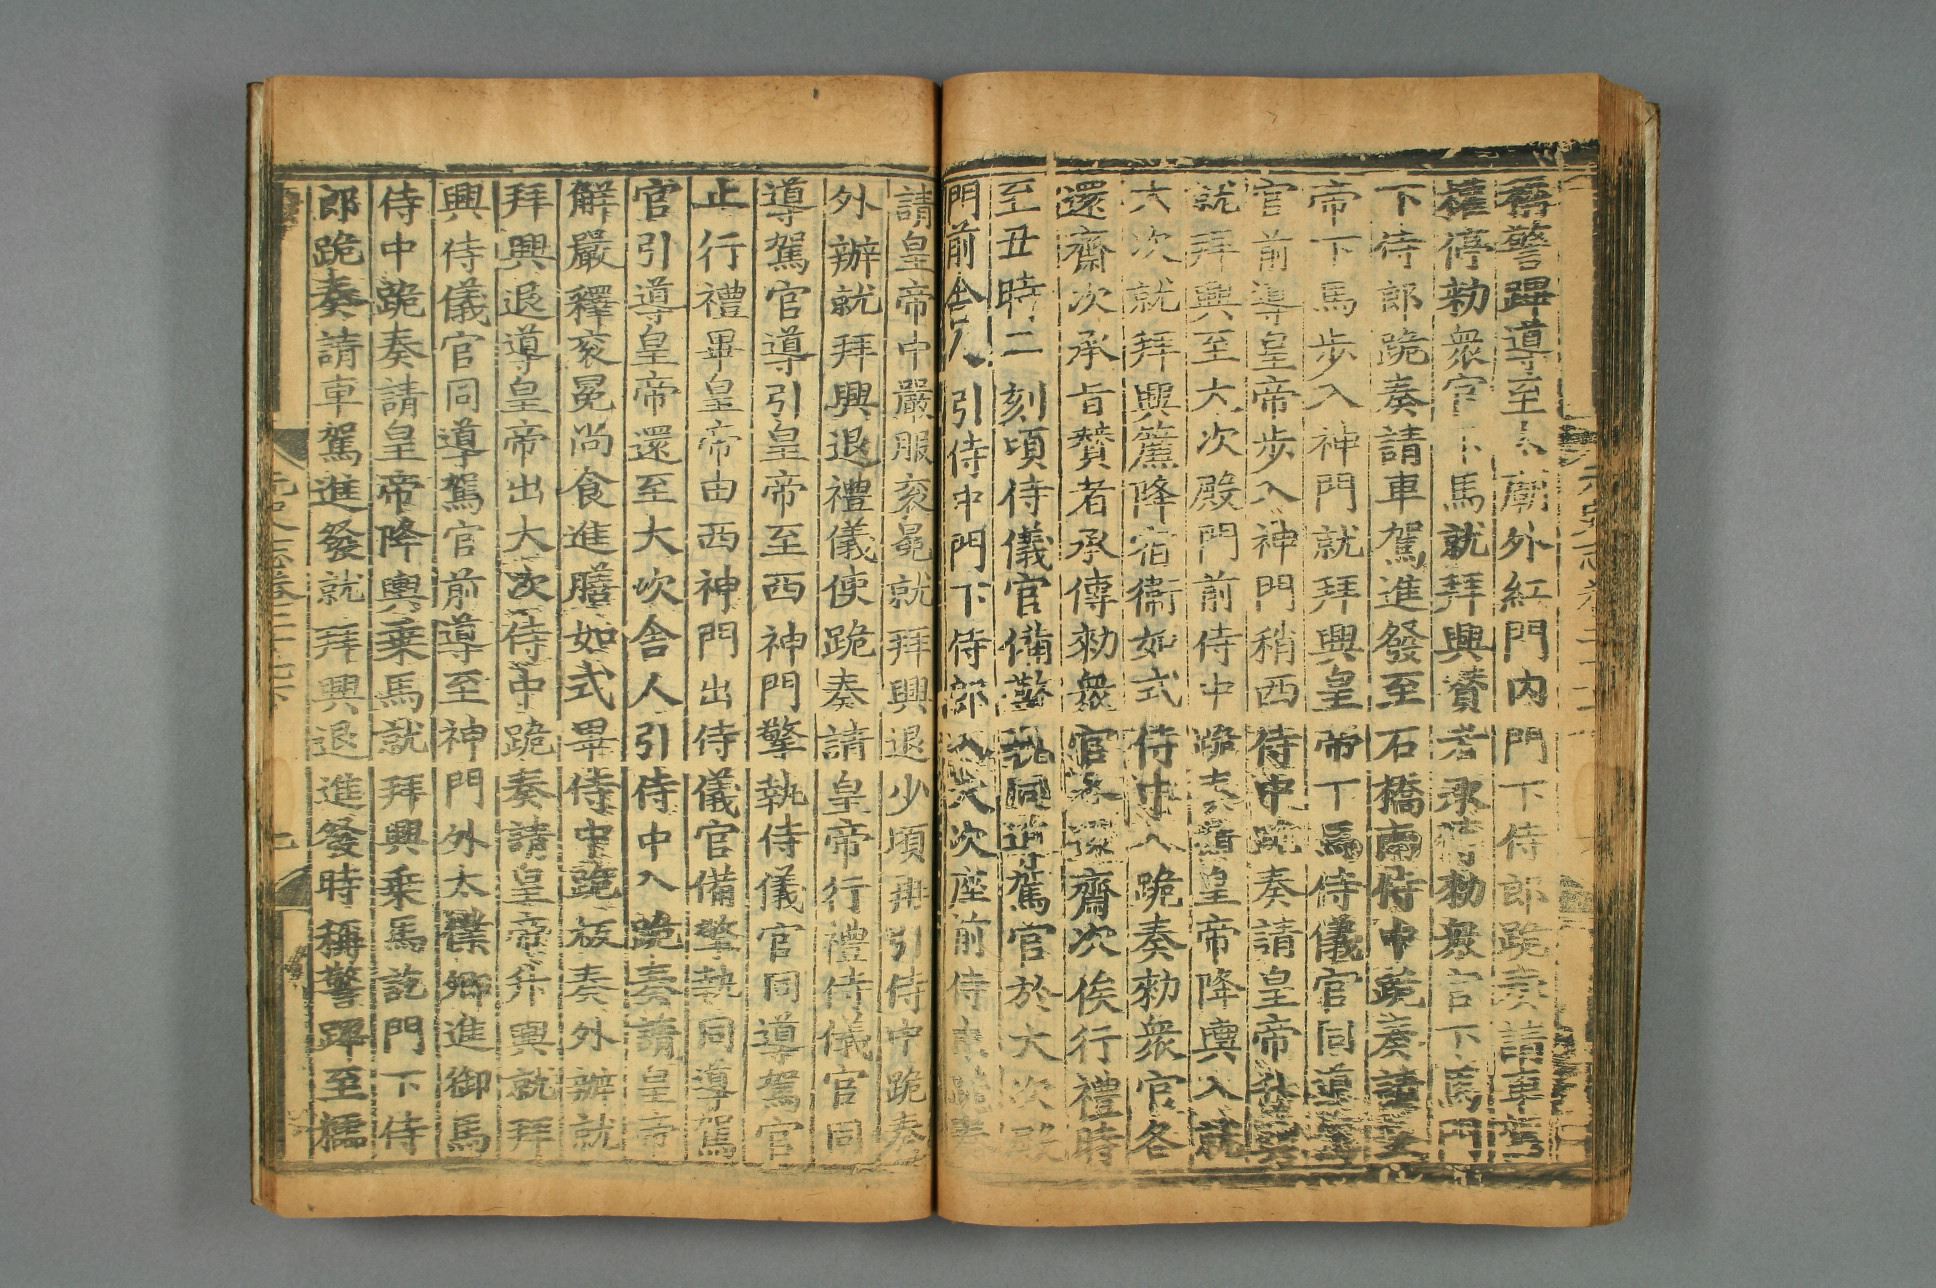 稱警蹕導至太廟外紅門內門下侍郎跪奏請車駕
權停勑衆官下馬就拜興贊者承傳勑衆官下馬門
下侍郎跪奏請車駕進發至石橋南侍中跪奏請皇
帝下馬步入神門就拜興皇帝下馬侍儀官同導駕
官前導皇帝步入神門稍西侍中跪奏請皇帝升輿
就拜興至大次殿門前侍中跪奏請皇帝降輿入就
大次就拜興簾降宿衞如式侍中入跪奏勑衆官各
還齋次承旨贊者承傳勑衆官各還齋次俟行禮時
至丑時二刻頃侍儀官備擎執同導駕官於大次殿
門前舍人引侍中門下侍郎入大次座前侍中跪奏
請皇帝中嚴服衮冕就拜興退少頃再引侍中跪奏
外辦就拜興退禮儀使跪奏請皇帝行禮侍儀官同
導駕官導引皇帝至西神門擎執侍儀官同導駕官
止行禮畢皇帝由西神門出侍儀官備擎執同導駕
官引導皇帝還至大次舍人引侍中入跪奏請皇帝
解嚴釋衮冕尚食進膳如式畢侍中跪版奏外辦就
拜興退導皇帝出大次侍中跪奏請皇帝升輿就拜
興侍儀官同導駕官前導至神門外太僕卿進御馬
侍中跪奏請皇帝降輿乗馬就拜興乗馬訖門下侍
郎跪奏請車駕進發就拜興退進發時稱警蹕至櫺
元史志卷二十七下
七